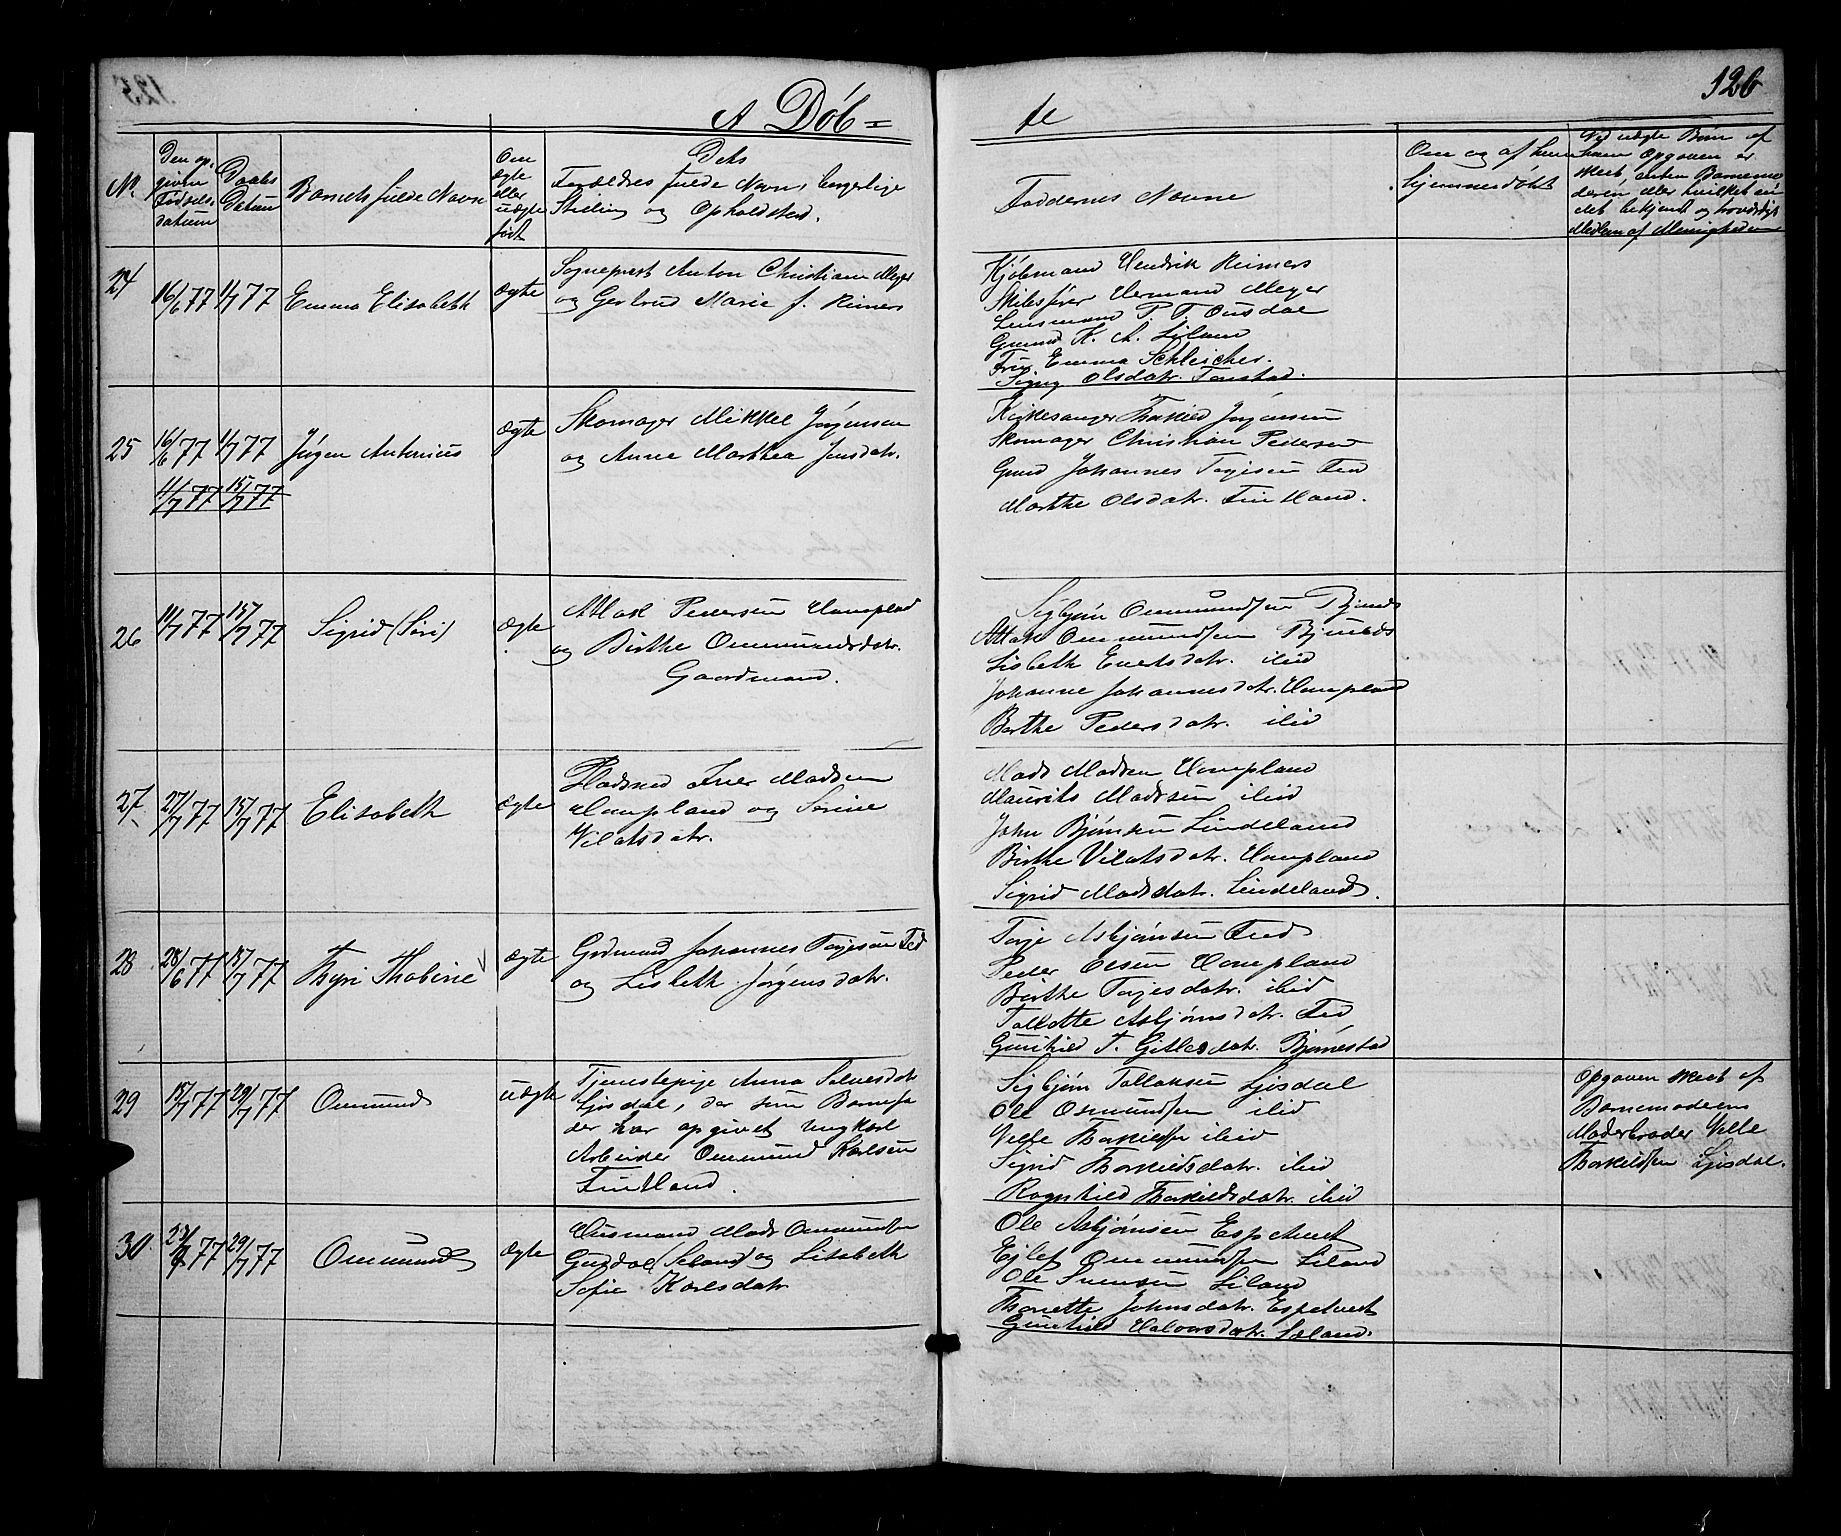 125
126
A Døb=
te
No.
Den op-
given
Fødsels-
datum
Daabs
Datum
Barnets fulde Navn
Om
ægte
eller
uægte
født
Dets
Forældres fulde Navn, borgerlige
Stilling og Opholdsted.
Faddernes Navne
Om og af hvem
hjemmedøbt
Ved uægte Børn af
hvem Opgaven er
skeet, enten Barnemo
deren eller hvilket an
det bekjent og troværdigt
Medlem af Menigheden
24
16/6 77
1/7 77
Emma Elisabeth
ægte
Sogneprest Anton Christian Meyer
og Gertrud Marie f. Reimers
Kjøbmand Hendrik Reimers
Skibsfører Hermand Meyer
Lensmand P. T. Ousdal
Gmand K. A. Liland
Frøk. Emma Schleicher.
Signy Olsdatr. Tonstad.
25
16/6 77
1/7 77
Jørgen Antonius
ægte
Skomager Mikkel Jørgensen
og Anne Marthea Jensdatr.
11/7 77 15/7 77
Kirkesanger Thorkild Jørgensen
Skomager Christian Pedersen
Gmd Johannes Torjesen Fed
Marthe Olsdatr. Fintland.
26
11/7 77
15/7 77
Sigrid (Siri)
ægte
Atlak Pedersen Hompland
og Birthe Ommundsdatr.
Gaardmand.
Sigbjørn Ommundsen Bjunes
Atlak Ommundsen Bjunes
Lisbeth Evertsdatr. ibid
Johanne Johannesdatr. Hompland
Berthe Pedersdatr. ibid
27.
27/7 77
15/7 77
Elisabeth
ægte
Pladsmd Iver Madsen
Hompland og Serine
Vilatsdatr.
Mads Madsen Hompland
Maurits Madsen ibid
John Bjørnsen Lindeland
Birthe Vilatsdatr. Hompland
Sigrid Madsdatr. Lindeland.
28
28/6 77
15/7 77
Thyri Thobine
ægte
Grdmand Johannes Torjesen Fed
og Lisbeth Jørgensdatr.
Torje Asbjørnsen Fed
Peder Olsen Hompland
Birthe Torjesdatr. ibid
Tallotte Asbjørnsdatr. Fed
Gunhild T. Gitlesdatr. Bjørnestad
29
15/7 77
29/7 77
Ommund
uægte
Tjenestepige Anna Salvesdatr
Ljosdal, der som Barnefa
der har opgivet ungkarl
Arbeider Ommund Karlsen
Fintland.
Sigbjørn Tallaksen Ljosdal
Ole Osmundsen ibid
Velle Thorkildsen ibid
Sigrid Thorkildsdatr. ibid
Ragnhild Thorkildsdatr. ibid
Opgaven skeet af
Barnemoderens
Moderbroder Velle
Thorkildsen Ljosdal.
30.
29/7 77
Ommund
ægte
Husmand Mads Ommundsen
Guddal (Seland) og Lisabeth
Sofie Karlsdatr
Ole Asbjørnsen Espetveit
Ejlef Ommundsen Liland
Ole Svensen Liland
Thonette Johnsdatr. Espetveit
Gunhild Halvorsdatr. Sæland.